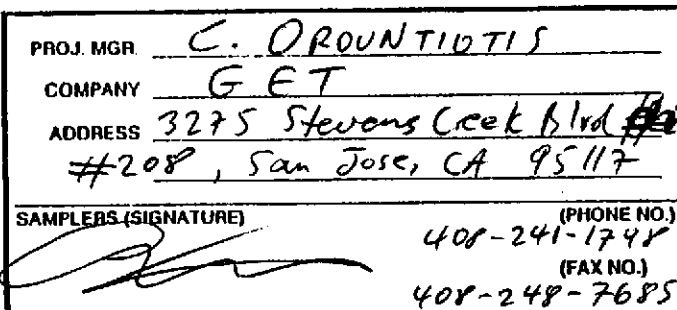 PROJ. MGR. C. OROUNTIOTIS
COMPANY GET
ADDRESS 3275 Stevens Creek Blvd
#208, San Jose, CA 95117
SAMPLERS (SIGNATURE) (PHONE NO.)
408-241-1748
(FAX NO.)
408-248-7685